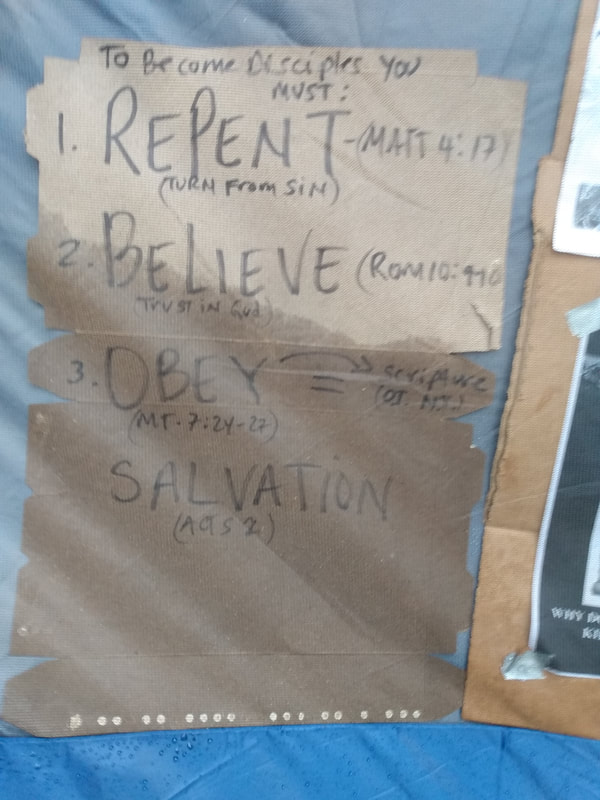 To Become Disciples You
MUST:
1. REPENT - (MATT 4:17)
(TURN From SiN)
2. BELIEVE (ROM 10:9+10
(TRUST iN God)
3. OBEY = scripture
(OT. NT.)
(MT. 7:24-27)
SALVATION
(ACTS 2)
WHY